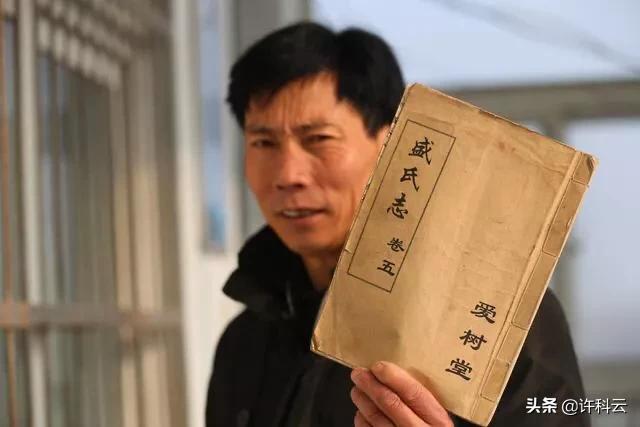 盛氏志 卷五
爱树堂
头条 @许科云